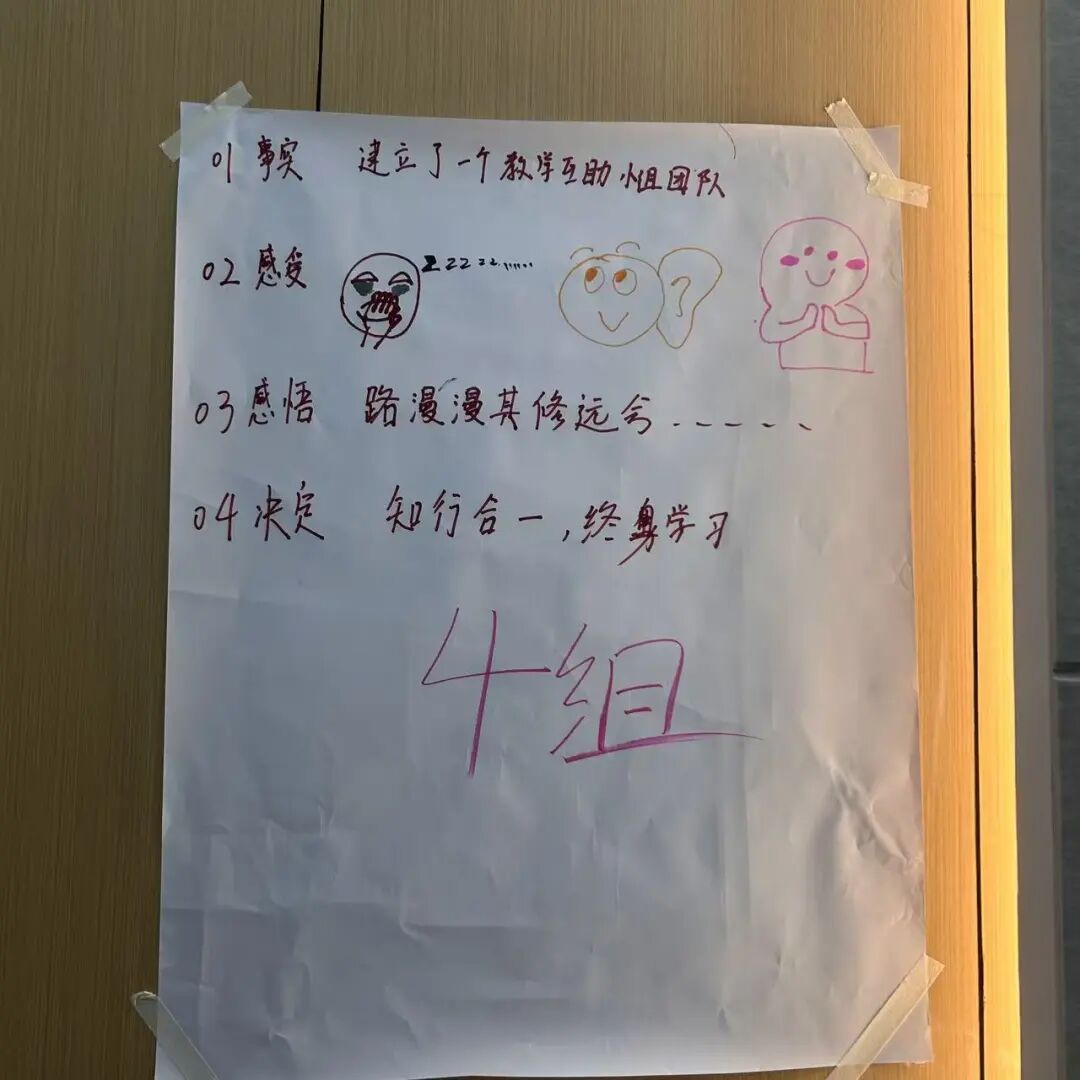 01 事实 建立了一个教学互助小组团队
02 感受 zzzzz...... ?
03 感悟 路漫漫其修远兮......
04 决定 知行合一,终身学习
4组